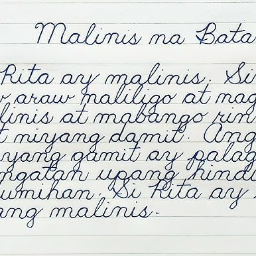 Malinis na Bata
Rita ay malinis. Si
araw naliligo at mag
linis at mabango rin
t niyang damit. Ang
yang gamit ay palag
ngatan upang hindi
umihan. Si Rita ay
ang malinis.